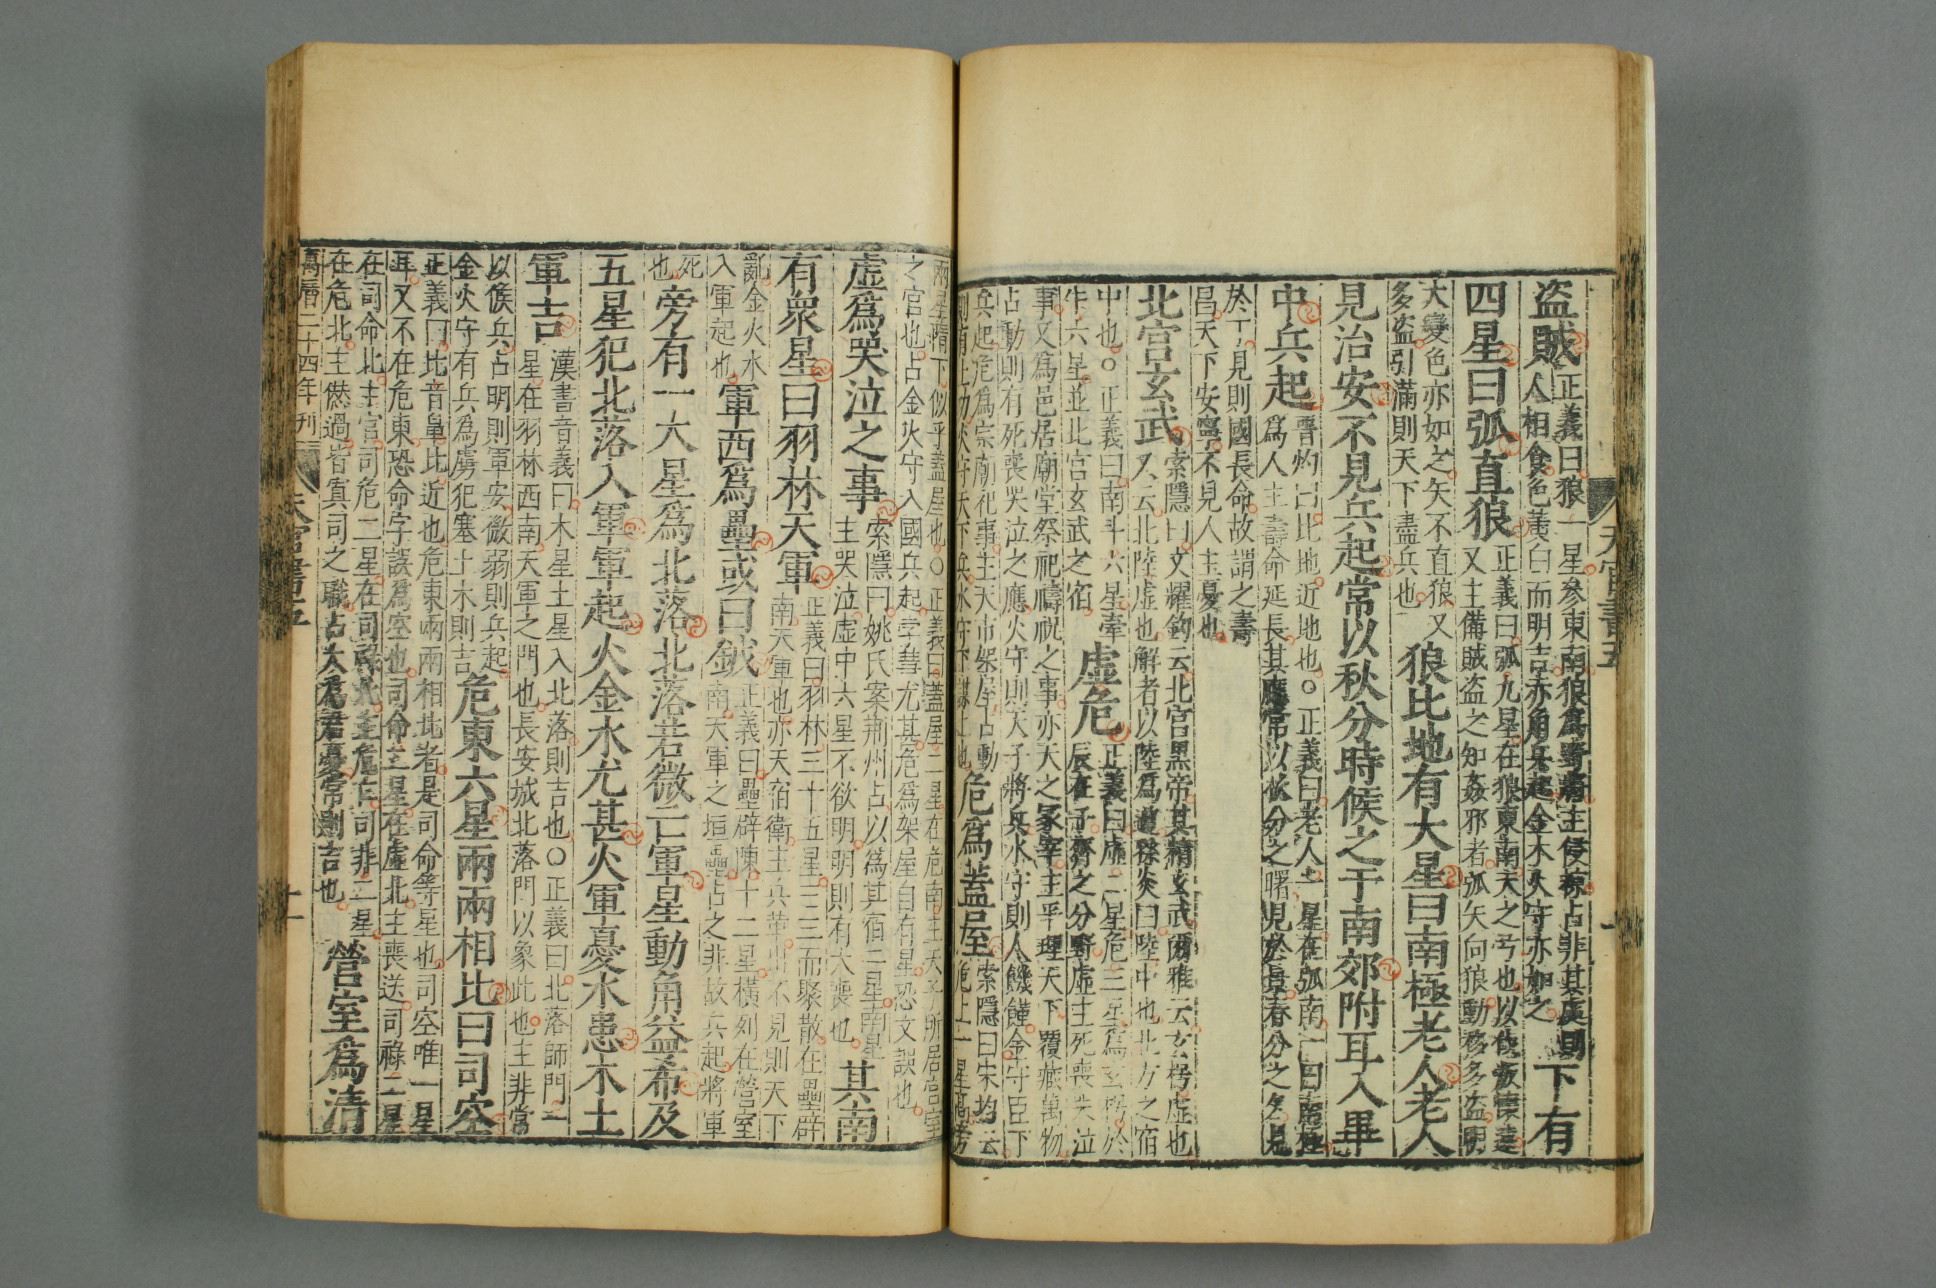 盜賊
正義曰狼一星參東南狼爲野將主侵掠占非其處則
人相食色黃白而明吉赤角兵起金木火守亦如之
下有
四星曰弧直狼
正義曰弧九星在狼東南天之弓也以伐叛懷遠
又主備賊盜之知姦邪者弧矢向狼動移多盜明
大變色亦如之矢不直狼又
多盜引滿則天下盡兵也
狼比地有大星曰南極老人老人
見治安不見兵起常以秋分時候之于南郊附耳入畢
中兵起
晉灼曰比地近地也○正義曰老人一星在弧南一曰南極
爲人主壽命延長其應常以秋分之曙見於景春分之夕見
於丁見則國長命故謂之壽
昌天下安寧不見人主憂也
北宮玄武
索隱曰文耀鉤云北宮黑帝其精玄武爾雅云玄枵虛也
又云北陸虛也解者以陸爲道孫炎曰陸中也北方之宿
中也○正義曰南斗六星牽
牛六星並北宮玄武之宿
虛危
正義曰虛二星危三星爲玄枵於
辰在子齊之分野虛主死喪哭泣
事又爲邑居廟堂祭祀禱祝之事亦天之冢宰主平理天下覆藏萬物
占動則有死喪哭泣之應火守則天子將兵水守則人饑饉金守臣下
兵起危爲宗廟祀事主天市架屋占動
則有土功火守天下兵水守下謀上也
危爲蓋屋
索隱曰宋均云
危上一星高旁
兩星隋下似乎蓋屋也○正義曰蓋屋二星在危南主天子所居宮室
之官也占金火守入國兵起孛彗尤甚危爲架屋自有星恐文誤也
虛爲哭泣之事
索隱曰姚氏案荊州占以爲其宿二星南星
主哭泣虛中六星不欲明明則有大喪也
其南
有衆星曰羽林天軍
正義曰羽林三十五星三三而聚散在壘辟
南天軍也亦天宿衛主兵革出不見則天下
亂金火水
入軍起也
軍西爲壘或曰鉞
正義曰壘辟陳十二星橫列在營室
南天軍之垣壘占之非故兵起將軍
死
也
旁有一大星爲北落北落若微亡軍星動角益希及
五星犯北落入軍軍起火金水尤甚火軍憂水患木土
軍吉
漢書音義曰木星土星入北落則吉也○正義曰北落師門一
星在羽林西南天軍之門也長安城北落門以象此也主非常
以候兵占明則軍安微弱則兵起
金火守有兵爲虜犯塞土木則吉
危東六星兩兩相比曰司空
正義曰比音鼻比近也危東兩兩相比者是司命等星也司空唯一星
耳又不在危東恐命字誤爲空也司命二星在虛北主喪送司祿二星
在司命北主官司危二星在司祿北主危亡司非二星
在危北主僽過皆寘司之職占大爲君憂常則吉也
營室爲清
萬曆二十四年刊
天官書五
十一